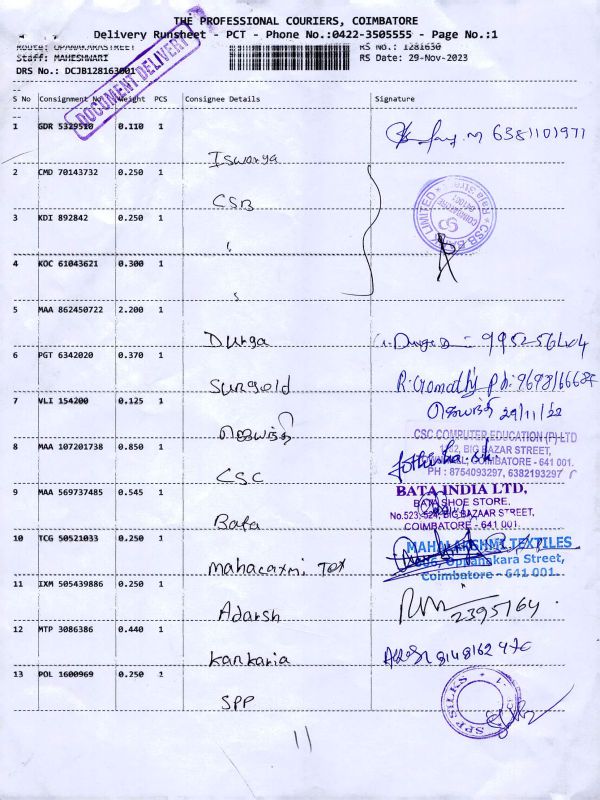 THE PROFESSIONAL COURIERS, COIMBATORE
Delivery Runsheet - PCT - Phone No.:0422-3505555 - Page No.:1
Route: OPANAKARASTREET RS No.: 1281630
Staff: MAHESHWARI RS Date: 29-Nov-2023
DRS No.: DCJB128163001
DOCUMENT DELIVERY
S No Consignment No Weight PCS Consignee Details Signature
1 GDR 5329510 0.110 1 6381101971
Iswarya
2 CMD 70143732 0.250 1
CSB
CSB BANK LIMITED
COIMBATORE
3 KDI 892842 0.250 1
4 KOC 61043621 0.300 1
5 MAA 862450722 2.200 1
Durga
6 PGT 6342020 0.370 1 R. Gomathy
Sungold
7 VLI 154200 0.125 1 ஜெயந்தி
ஜெயந்தி
8 MAA 107201738 0.850 1
CSC COMPUTER EDUCATION (P) LTD
BIG BAZAR STREET,
COIMBATORE - 641 001.
PH : 8754093297, 6382193297
CSC
9 MAA 569737485 0.545 1
BATA INDIA LTD,
BATA SHOE STORE,
No.523, 524, BIG BAZAAR STREET,
COIMBATORE - 641 001.
Bata
10 TCG 50521033 0.250 1
MAHALAKSHMI TEXTILES
Oppanakara Street,
Coimbatore - 641 001.
mahalaxm. Tex
11 IXM 505439886 0.250 1 2395164
Adarsh
12 MTP 3086386 0.440 1
Kankaria
13 POL 1600969 0.250 1
SPP SILKS
SPP